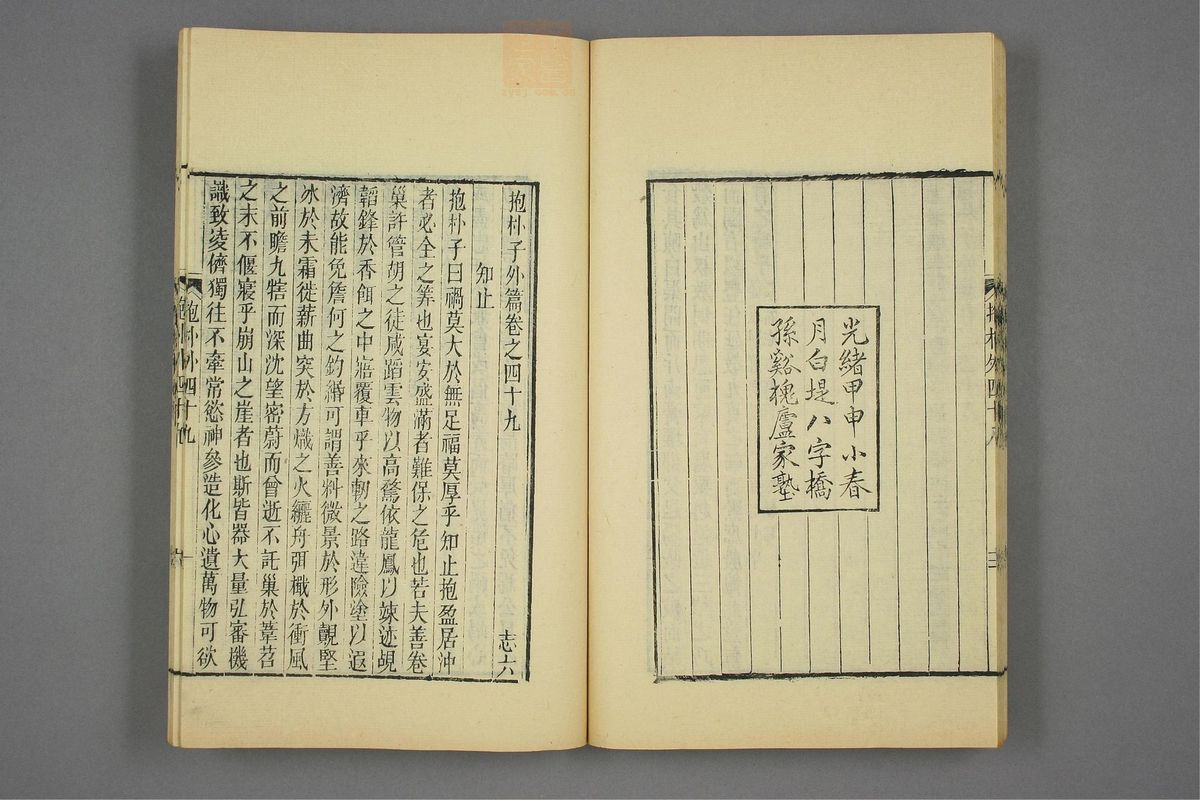 光緒甲申小春
月白堤八字橋
孫谿槐廬家塾
抱朴子外篇卷之四十九 志六
知止
抱朴子曰禍莫大於無足福莫厚乎知止抱盈居沖
者必全之筭也宴安盛滿者難保之危也若夫善卷
巢許管胡之徒咸蹈雲物以高騖依龍鳳以竦迹覘
韜鋒於香餌之中寤覆車乎來軔之路違險塗以遐
濟故能免詹何之釣緡可謂善料微景於形外覿堅
冰於未霜徙薪曲突於方熾之火纚舟弭檝於衝風
之前瞻九犗而深沈望密蔚而曾逝不託巢於葦苕
之末不偃寢乎崩山之崖者也斯皆器大量弘審機
識致凌儕獨往不牽常慾神參造化心遺萬物可欲
抱朴外四十九